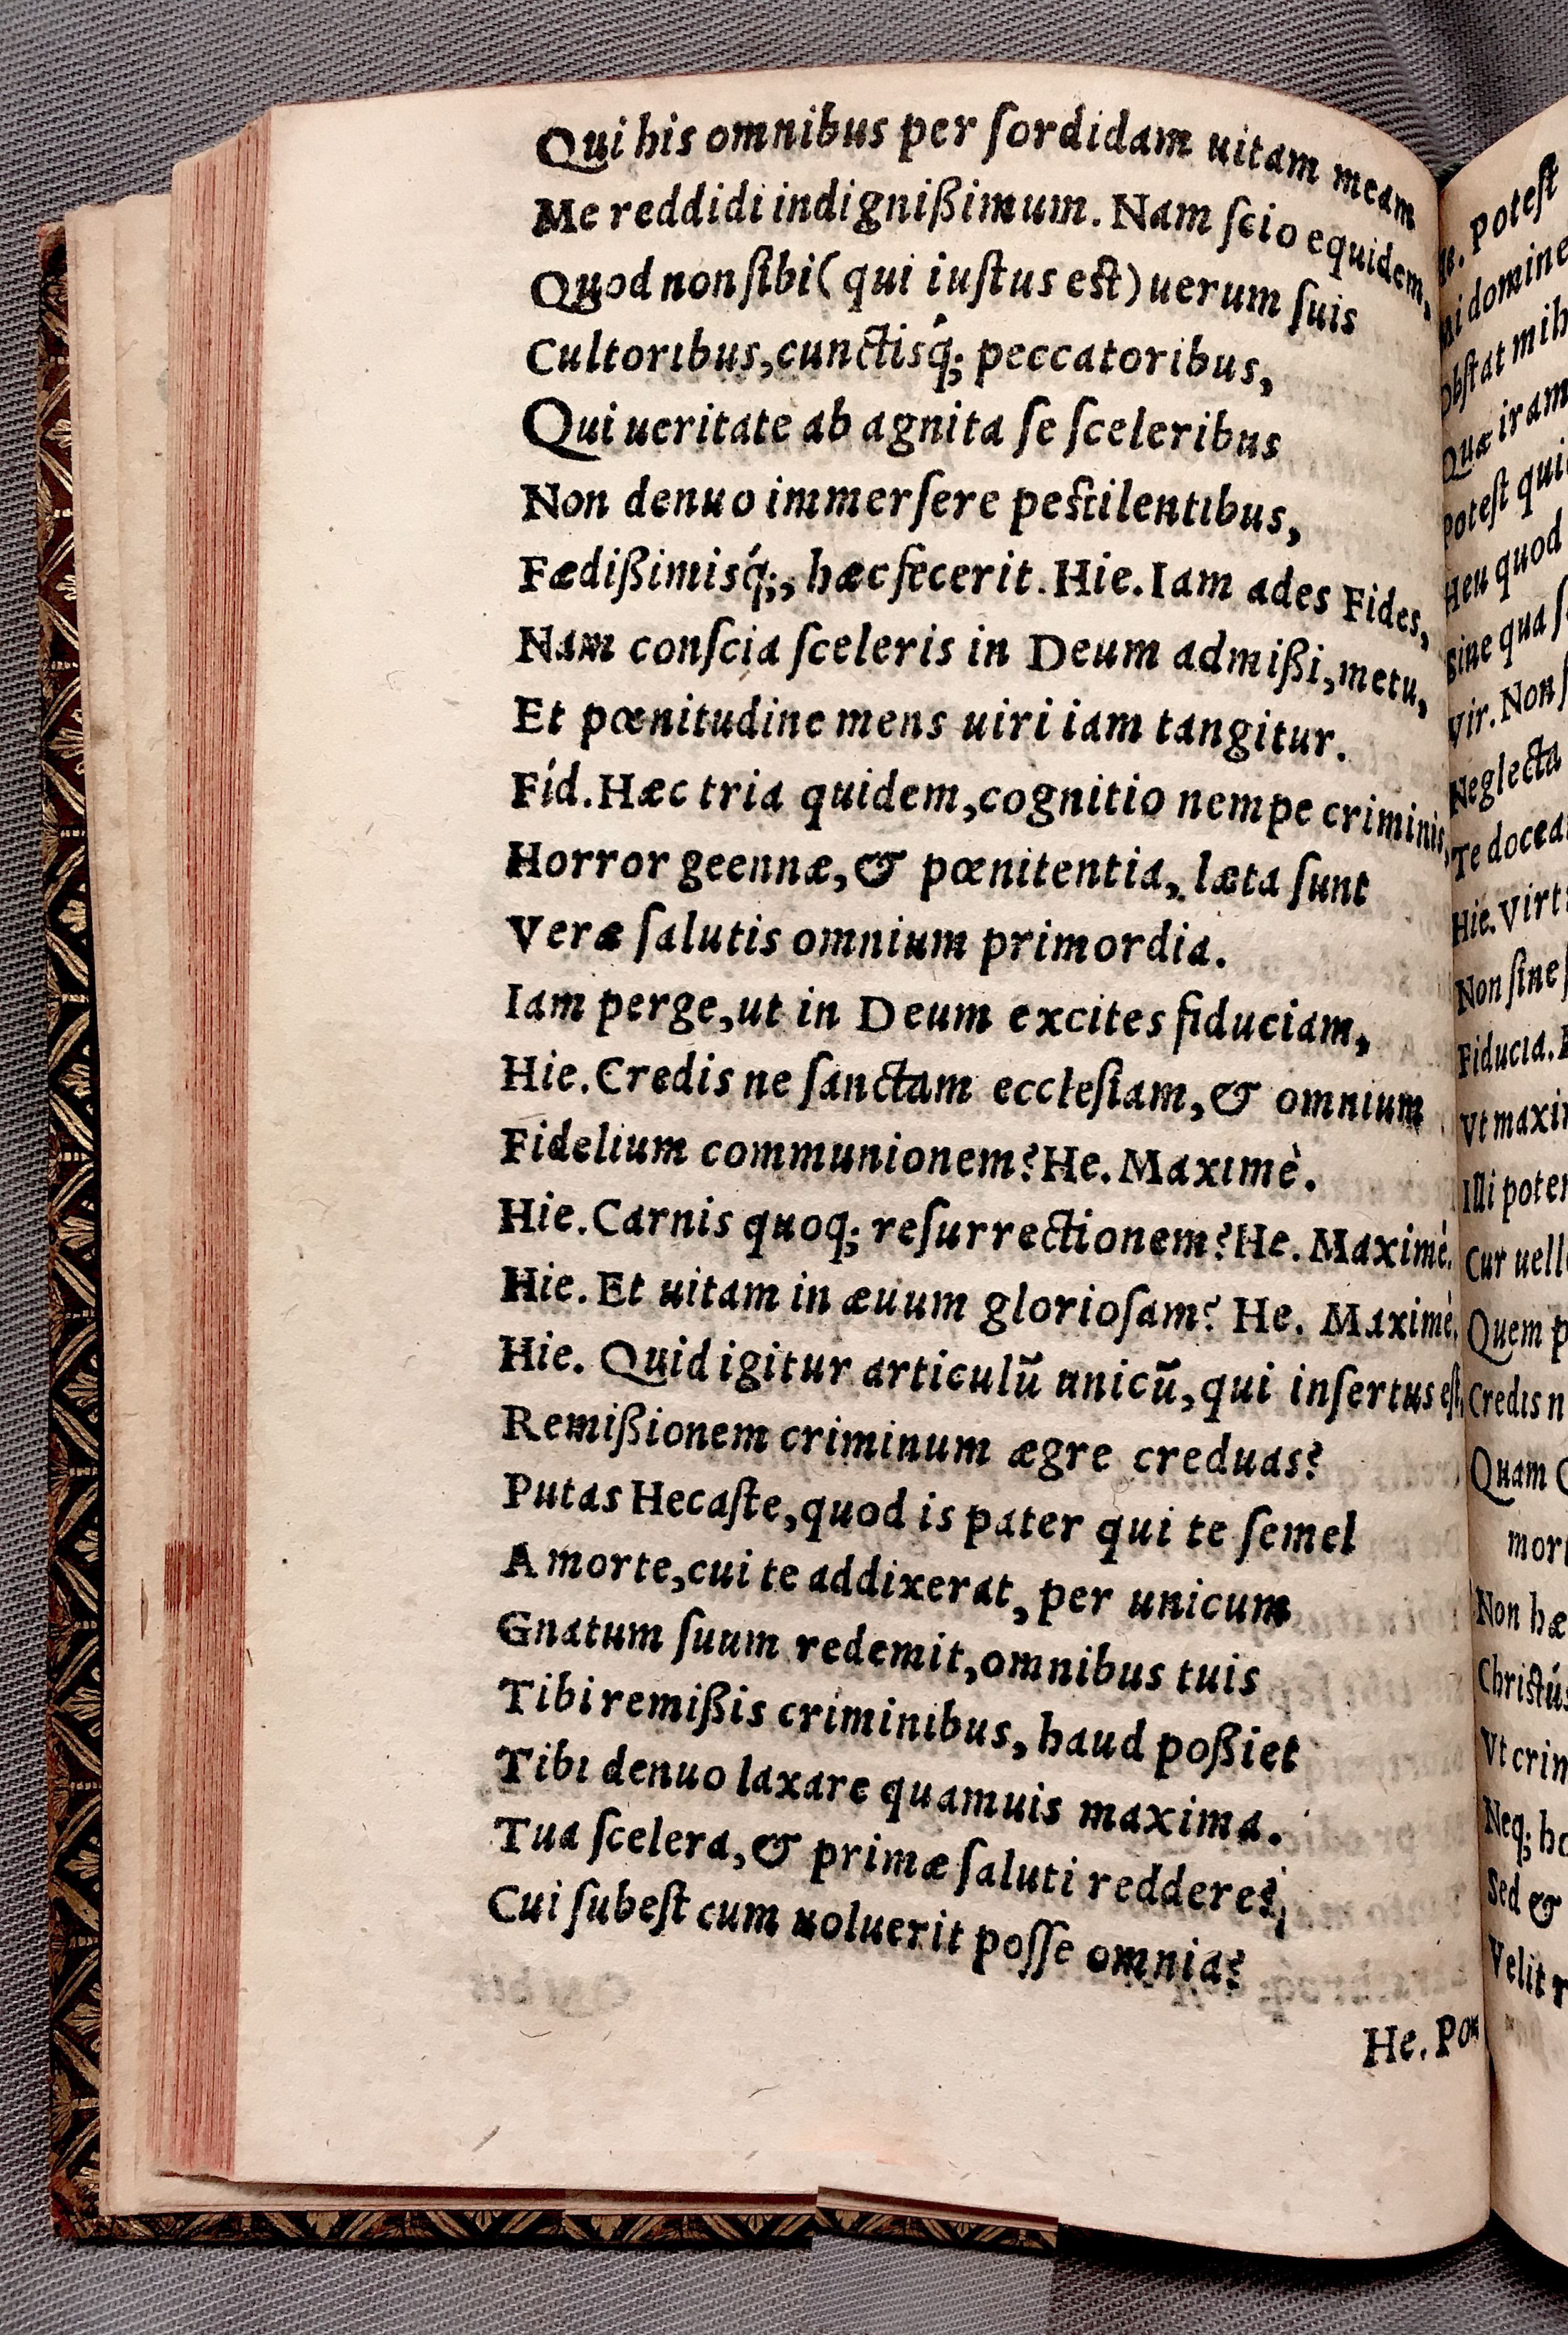 Qui his omnibus per ſordidam uitam meam
Me reddidi indignißimum. Nam ſcio equidem,
Quod non ſibi ( qui iuſtus eſt ) uerum ſuis
Cultoribus, cunctisq́; peccatoribus,
Qui ueritate ab agnita ſe ſceleribus
Non denuo immerſere peſtilentibus,
Fædißimisq́;, hæc fecerit. Hie. Iam ades Fides,
Nam conſcia ſceleris in Deum admißi, metu,
Et pœnitudine mens uiri iam tangitur.
Fid. Hæc tria quidem, cognitio nempe criminis,
Horror geennæ, & pœnitentia, læta ſunt
Veræ ſalutis omnium primordia.
Iam perge, ut in Deum excites fiduciam,
Hie. Credis ne ſanctam eccleſiam, & omnium
Fidelium communionem? He. Maximè.
Hie. Carnis quoq; reſurrectionem? He. Maximè.
Hie. Et uitam in æuum glorioſam? He. Maximè.
Hie. Quid igitur articulū unicū, qui inſertus eſt,
Remißionem criminum ægre creduas?
Putas Hecaſte, quod is pater qui te ſemel
A morte, cui te addixerat, per unicum
Gnatum ſuum redemit, omnibus tuis
Tibi remißis criminibus, haud poßiet
Tibi denuo laxare quamuis maxima.
Tua ſcelera, & primæ ſaluti reddere?
Cui ſubeſt cum uoluerit poſſe omnia?
He. Pot
Poteſt
domine
Obſtat mih
Quæ iram
Poteſt qui
Heu quod
Sine qua
Vir. Non
Neglecta
Te docea
Hie. Virt
Non ſine
Fiducia.
Vt maxi
Illi poter
Cur uell
Quem p
Credis n
Quam
mor
Non hæ
Chriſtú
Vt crim
Neq; ho
Sed &
Velit r